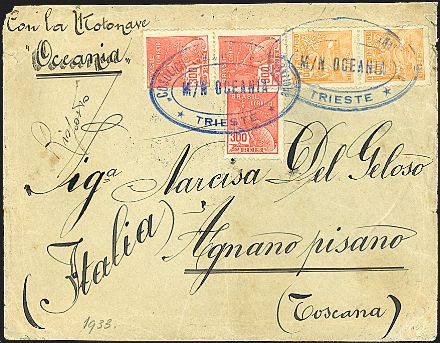 Con la Motonave
"Oceania"
300
300
BRASIL
CORREIO
300
M/N OCEANIA
TRIESTE
M/N OCEANIA
TRIESTE
Sig.a Narcisa Del Geloso
(Italia)
Agnano pisano
(Toscana)
1933.